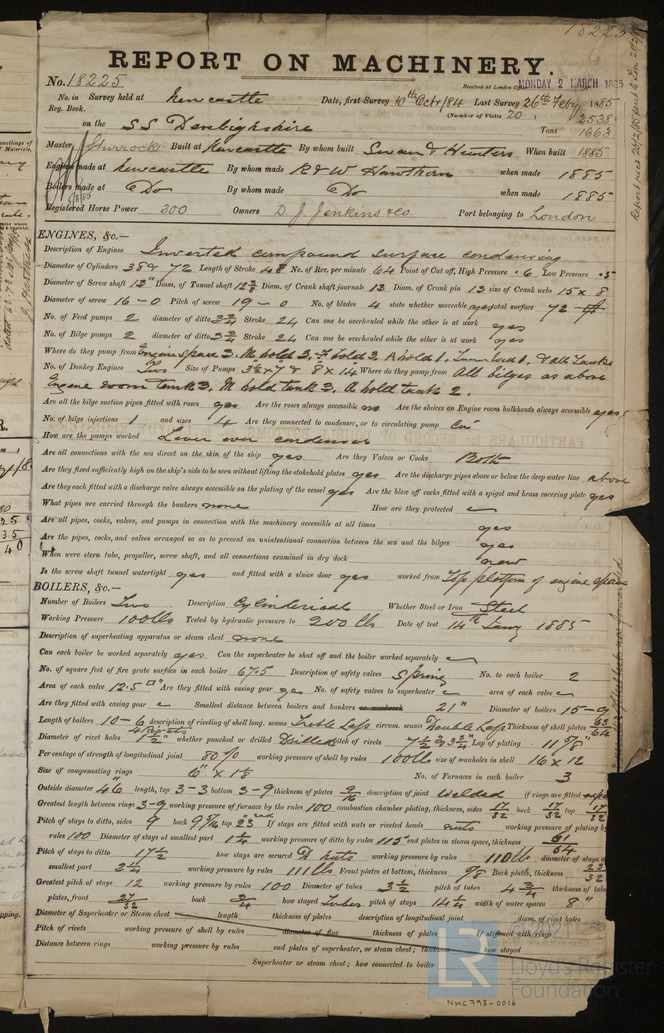 18225
REPORT ON MACHINERY.
No. 18225 Received at London MONDAY 2 MARCH 1885
No. in Survey held at Newcastle Date, first Survey 10th Octr/84 Last Survey 26th Feby 1885
Reg. Book. (Number of Visits 20)
on the SS Denbighshire Tons 2538
1663
Master Built at Newcastle By whom built Swan & Hunter When built 1885
Engines made at Newcastle By whom made R & W Hawthorn when made 1885
Boilers made at Do By whom made Do when made 1885
Registered Horse Power 300 Owners D. J. Jenkins & Co Port belonging to London
ENGINES, &c.—
Description of Engines Inverted compound surface condensing
Diameter of Cylinders 38 & 72 Length of Stroke 48 No. of Rev. per minute 64 Point of Cut off, High Pressure .6 Low Pressure .5
Diameter of Screw shaft 13" Diam. of Tunnel shaft Diam. of Crank shaft journals 13 Diam. of Crank pin 13 size of Crank webs 15 x 8
Diameter of screw 16-0 Pitch of screw 19-0 No. of blades 4 state whether moveable yes total surface 72
No. of Feed pumps 2 diameter of ditto 3¾ Stroke 24 Can one be overhauled while the other is at work yes
No. of Bilge pumps 2 diameter of ditto 3¾ Stroke 24 Can one be overhauled while the other is at work yes
Where do they pump from Engine space 3. M hold 2, F hold 2, A hold 1. & all tanks
No. of Donkey Engines Two Size of Pumps & 8 x 14 Where do they pump from All bilges as above
Engine room tank 2, M hold tank 2. A hold tank 2.
Are all the bilge suction pipes fitted with roses yes Are the roses always accessible Are the sluices on Engine room bulkheads always accessible yes
No. of bilge injections 1 and sizes Are they connected to condenser, or to circulating pump
How are the pumps worked Lever over condenser
Are all connections with the sea direct on the skin of the ship yes Are they Valves or Cocks Both
Are they fixed sufficiently high on the ship's side to be seen without lifting the stokehold plates yes Are the discharge pipes above or below the deep water line above
Are they each fitted with a discharge valve always accessible on the plating of the vessel yes Are the blow off cocks fitted with a spigot and brass covering plate yes
What pipes are carried through the bunkers none How are they protected
Are all pipes, cocks, valves, and pumps in connection with the machinery accessible at all times yes
Are the pipes, cocks, and valves arranged so as to prevent an unintentional connection between the sea and the bilges yes
When were stern tube, propeller, screw shaft, and all connections examined in dry dock new
Is the screw shaft tunnel watertight yes and fitted with a sluice door yes worked from Top platform of engine space
BOILERS, &c.—
Number of Boilers Two Description Cylindrical Whether Steel or Iron Steel
Working Pressure 100 lbs Tested by hydraulic pressure to 200 lbs Date of test 14th Jany 1885
Description of superheating apparatus or steam chest none
Can each boiler be worked separately yes Can the superheater be shut off and the boiler worked separately
No. of square feet of fire grate surface in each boiler 67.5 Description of safety valves Spring No. to each boiler 2
Area of each valve 12.5 □" Are they fitted with easing gear yes No. of safety valves to superheater area of each valve
Are they fitted with easing gear Smallest distance between boilers and bunkers or woodwork 21" Diameter of boilers 15-9
Length of boilers 10-6 description of riveting of shell long. seams Treble Laps circum. seams Double Laps Thickness of shell plates
Diameter of rivet holes whether punched or drilled Drilled pitch of rivets Lap of plating
Per centage of strength of longitudinal joint 80% working pressure of shell by rules 100 lbs size of manholes in shell 16 x 12
Size of compensating rings No. of Furnaces in each boiler 3
Outside diameter length, top 3-3 bottom 3-9 thickness of plates 9/16 description of joint Welded if rings are fitted
Greatest length between rings 3-9 working pressure of furnace by the rules 100 combustion chamber plating, thickness, sides 17/32 back 17/32 top 17/32
Pitch of stays to ditto, sides 9 back top If stays are fitted with nuts or riveted heads nuts working pressure of plating by
rules 100 Diameter of stays at smallest part 1¼ working pressure of ditto by rules 115 end plates in steam space, thickness
Pitch of stays to ditto 17½ how stays are secured D nuts working pressure by rules 110 lbs diameter of stays at
smallest part 2¼ working pressure by rules 111 lbs Front plates at bottom, thickness Back plates, thickness 23/32
Greatest pitch of stays 12 working pressure by rules 100 Diameter of tubes 3½ pitch of tubes 4¾ thickness of tube
plates, front 27/32 back ¾ how stayed Tubes pitch of stays 14¼ width of water spaces 8"
Diameter of Superheater or Steam chest length thickness of plates description of longitudinal joint diam. of rivet holes
Pitch of rivets working pressure of shell by rules diameter of flue thickness of plates If stiffened with rings
Distance between rings working pressure by rules end plates of superheater, or steam chest; thickness how stayed
Superheater or steam chest; how connected to boiler
Lloyd's Register
Foundation
NWC793-0016